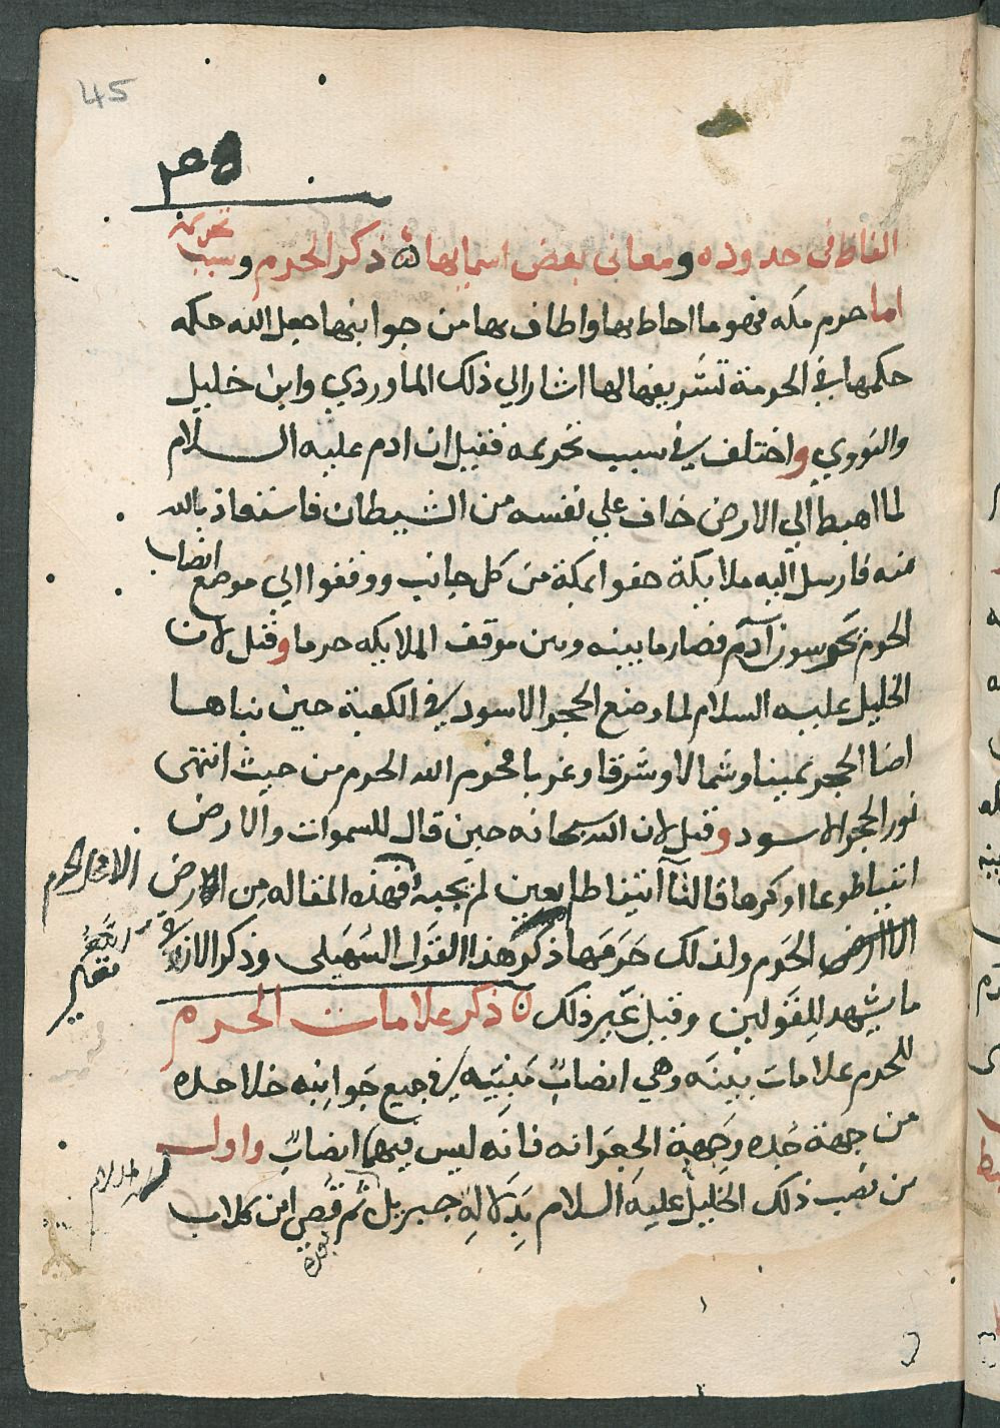 45
الفاظ في حدوده ومعاني بعض اسمايها ذكر الحرم وسبب تحريمه
اما حرم مكه فهو ما احاط بها واطاف بها من جوانبها جعل الله حكمه
حكمها في الحرمة تشريفها لها اشار الي ذلك الماوردي وابن خليل
والنووي واختلف في سبب تحريمه فقيل ان ادم عليه السلام
لما اهبط الي الارض خاف علي نفسه من الشيطان فاستعاذ بالله
منه فارسل اليه ملايكة حفوا بمكة من كل جانب ووقفوا الي موضع انصاب
الحرم يحرسون آدم فصار ما بينه وبين موقف الملايكه حرما وقيل لان
الخليل عليه السلام لما وضع الحجر الاسود في الكعبة حين بناها
اضا الحجر يمينا وشمالا وشرقا وغربا فحرم الله الحرم من حيث انتهى
نور الحجر الاسود وقيل لان الله سبحانه حين قال للسموات والارض
ائتيا طوعا او كرها قالتا آتينا طايعين لم يجبه بهذه المقاله من الارض الا محل الحرم
الا ارض الحرم ولذلك حرمها ذكر هذا القول السهيلي وذكر الازرقي
ما يشهد للقولين وقيل غير ذلك ذكر علامات الحرم
للحرم علامات بينه وهي انصاب مبنيه في جميع جوانبه خلا حده
من جهة جده وجهة الجعرانه فانه ليس فيهما انصاب واول
من نصب ذلك الخليل عليه السلام بدلالة جبريل ثم قصي ابن كلاب